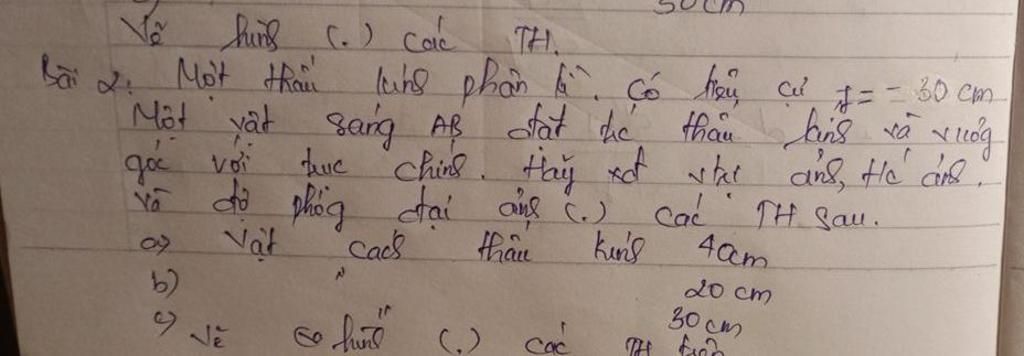 30cm
Vẽ hình (.) các TH.
Bài 2: Một thấu kính phân kì. Có tiêu cự f = - 30 cm
Một vật sáng AB đặt trc thấu kính và vuông
góc với trục chính. Hãy xđ vị trí ảnh, t/c ảnh.
và độ phóng đại ảnh (.) các TH sau.
a) Vật cách thấu kính 40cm
b) " 20 cm
c) " 30 cm
Vẽ hình (.) các TH trên